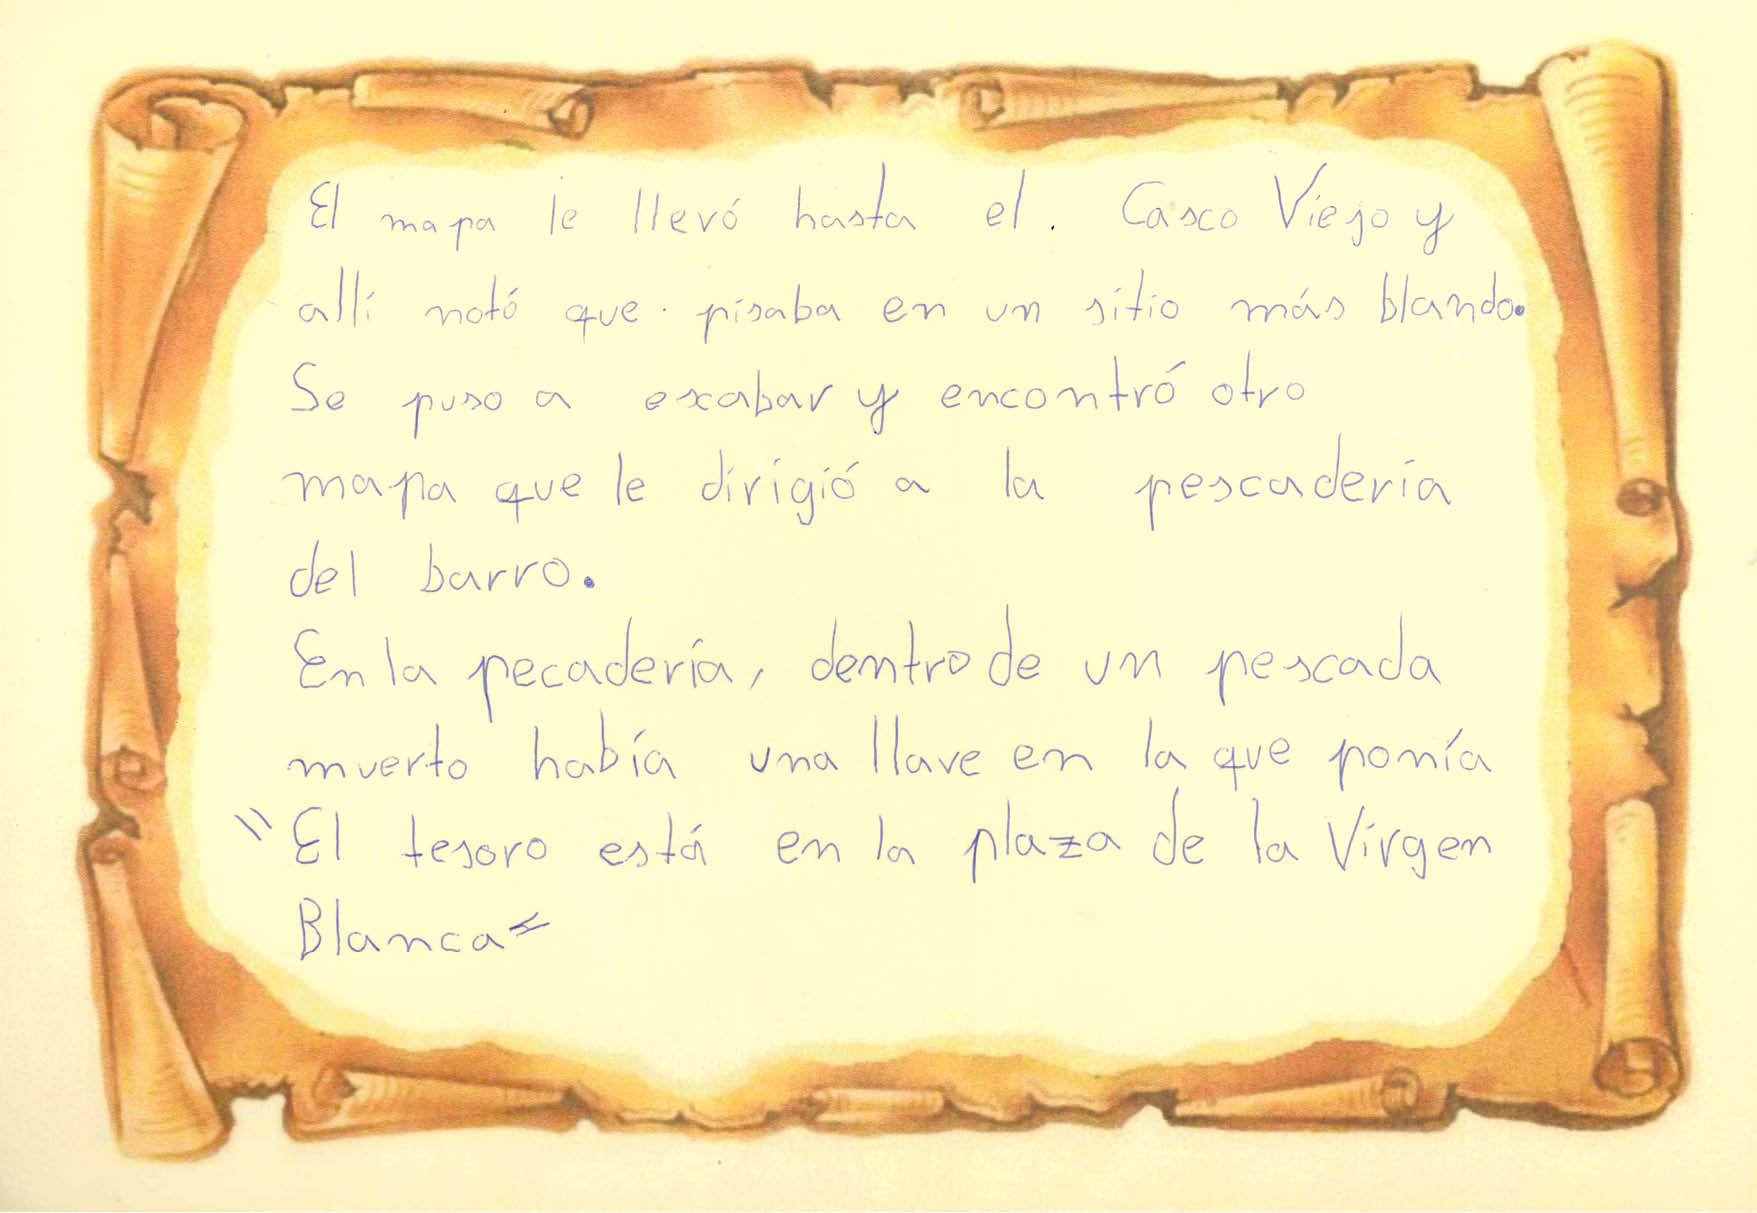 El mapa le llevó hasta el. Casco Viejo y
allí notó que pisaba en un sitio más blando.
Se puso a exabar y encontró otro
mapa que le dirigió a la pescadería
del barro.
En la pecadería, dentro de un pescada
muerto había una llave en la que ponía
"El tesoro está en la plaza de la Virgen
Blanca"